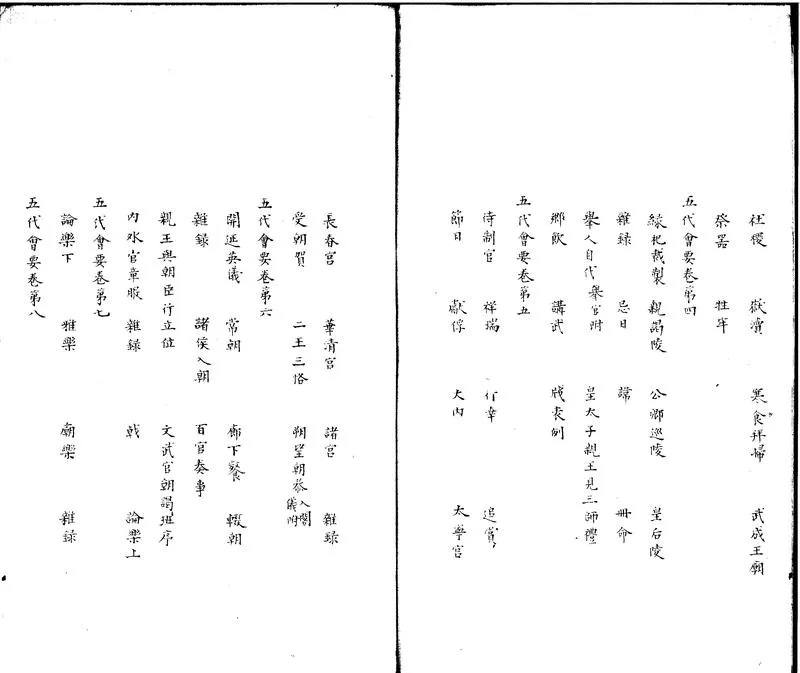 社稷 嶽瀆 寒食拜掃 武成王廟
祭器 牲牢
五代會要卷第四
緣祀裁製 親謁陵 公卿巡陵 皇后陵
雜録 忌日 諱 冊命
舉人自代 舉官附 皇太子親王見三師禮
鄉飲 講武 牋表例
五代會要卷第五
待制官 祥瑞 行幸 追賞
節日 獻俘 大内 太寧宮
長春宮 華清宮 諸宮 雜録
受朝賀 二王三恪 朔望朝叅 入閤儀附
五代會要卷第六
開延英儀 常朝 廊下餐 輟朝
雜録 諸侯入朝 百官奏事
親王與朝臣行立位 文武官朝謁班序
内外官章服 雜録 戟 論樂上
五代會要卷第七
論樂下 雅樂 廟樂 雜録
五代會要卷第八